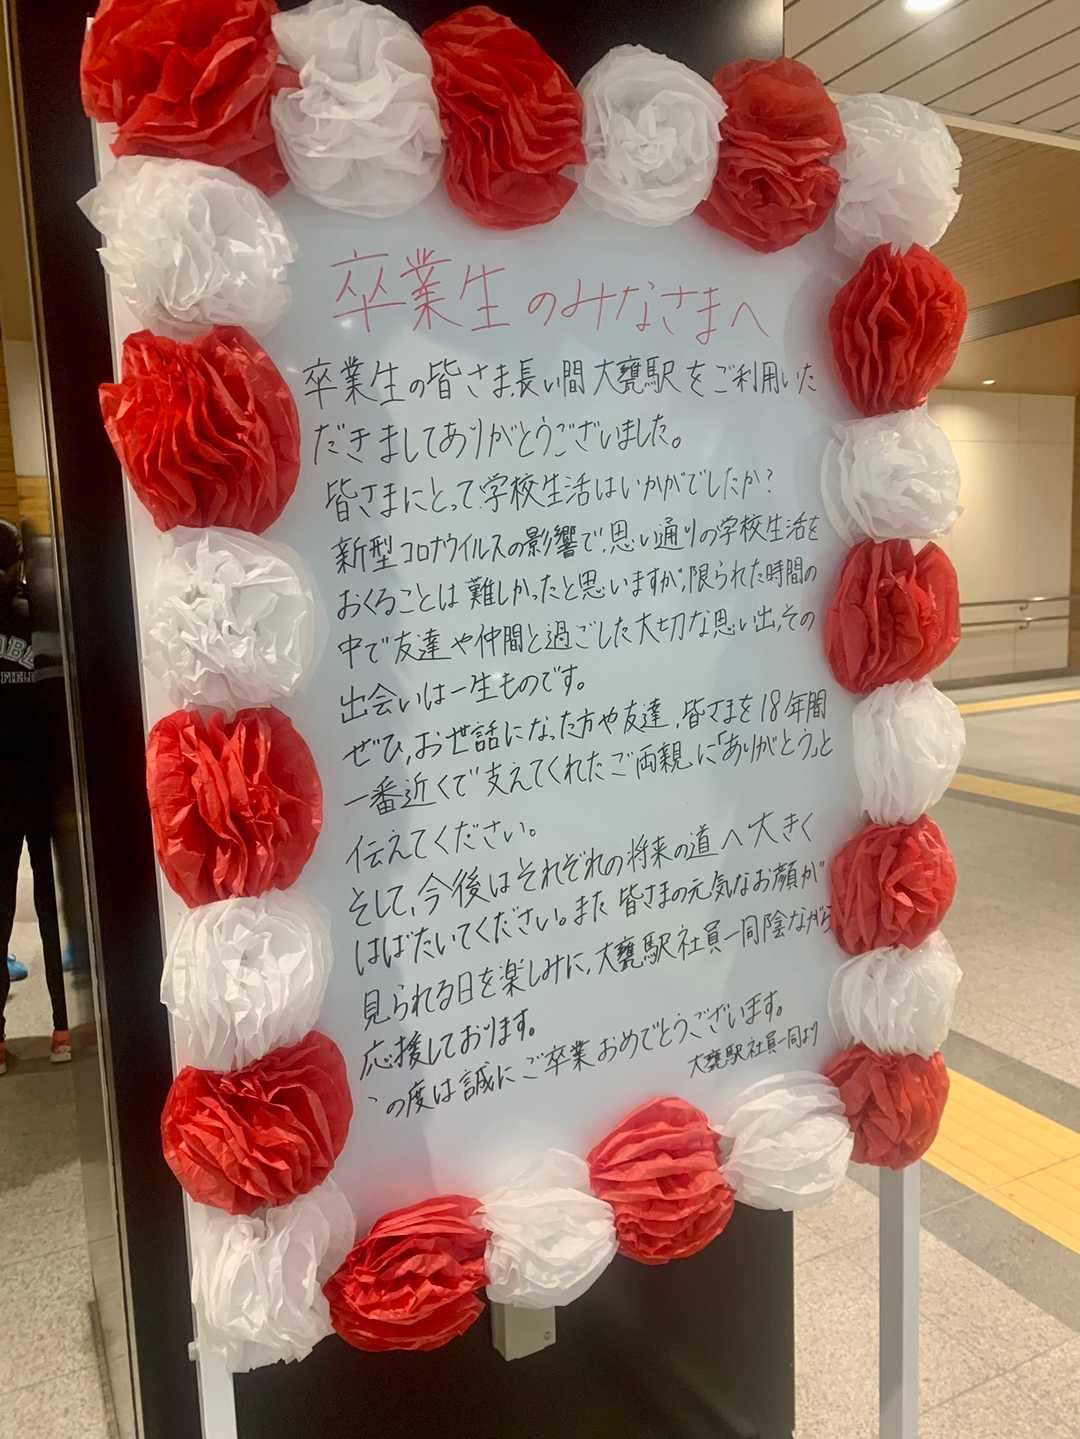 卒業生のみなさまへ
卒業生の皆さま、長い間大甕駅をご利用いた
だきましてありがとうございました。
皆さまにとって学校生活はいかがでしたか?
新型コロナウイルスの影響で、思い通りの学校生活を
おくることは難しかったと思いますが、限られた時間の
中で友達や仲間と過ごした大切な思い出、その
出会いは一生ものです。
ぜひ、お世話になった方や友達、皆さまを18年間
一番近くで支えてくれたご両親に「ありがとう」と
伝えてください。
そして、今後はそれぞれの将来の道へ大きく
はばたいてください。また皆さまの元気なお顔が
見られる日を楽しみに、大甕駅社員一同陰ながら
応援しております。
この度は誠にご卒業おめでとうございます。
大甕駅社員一同より